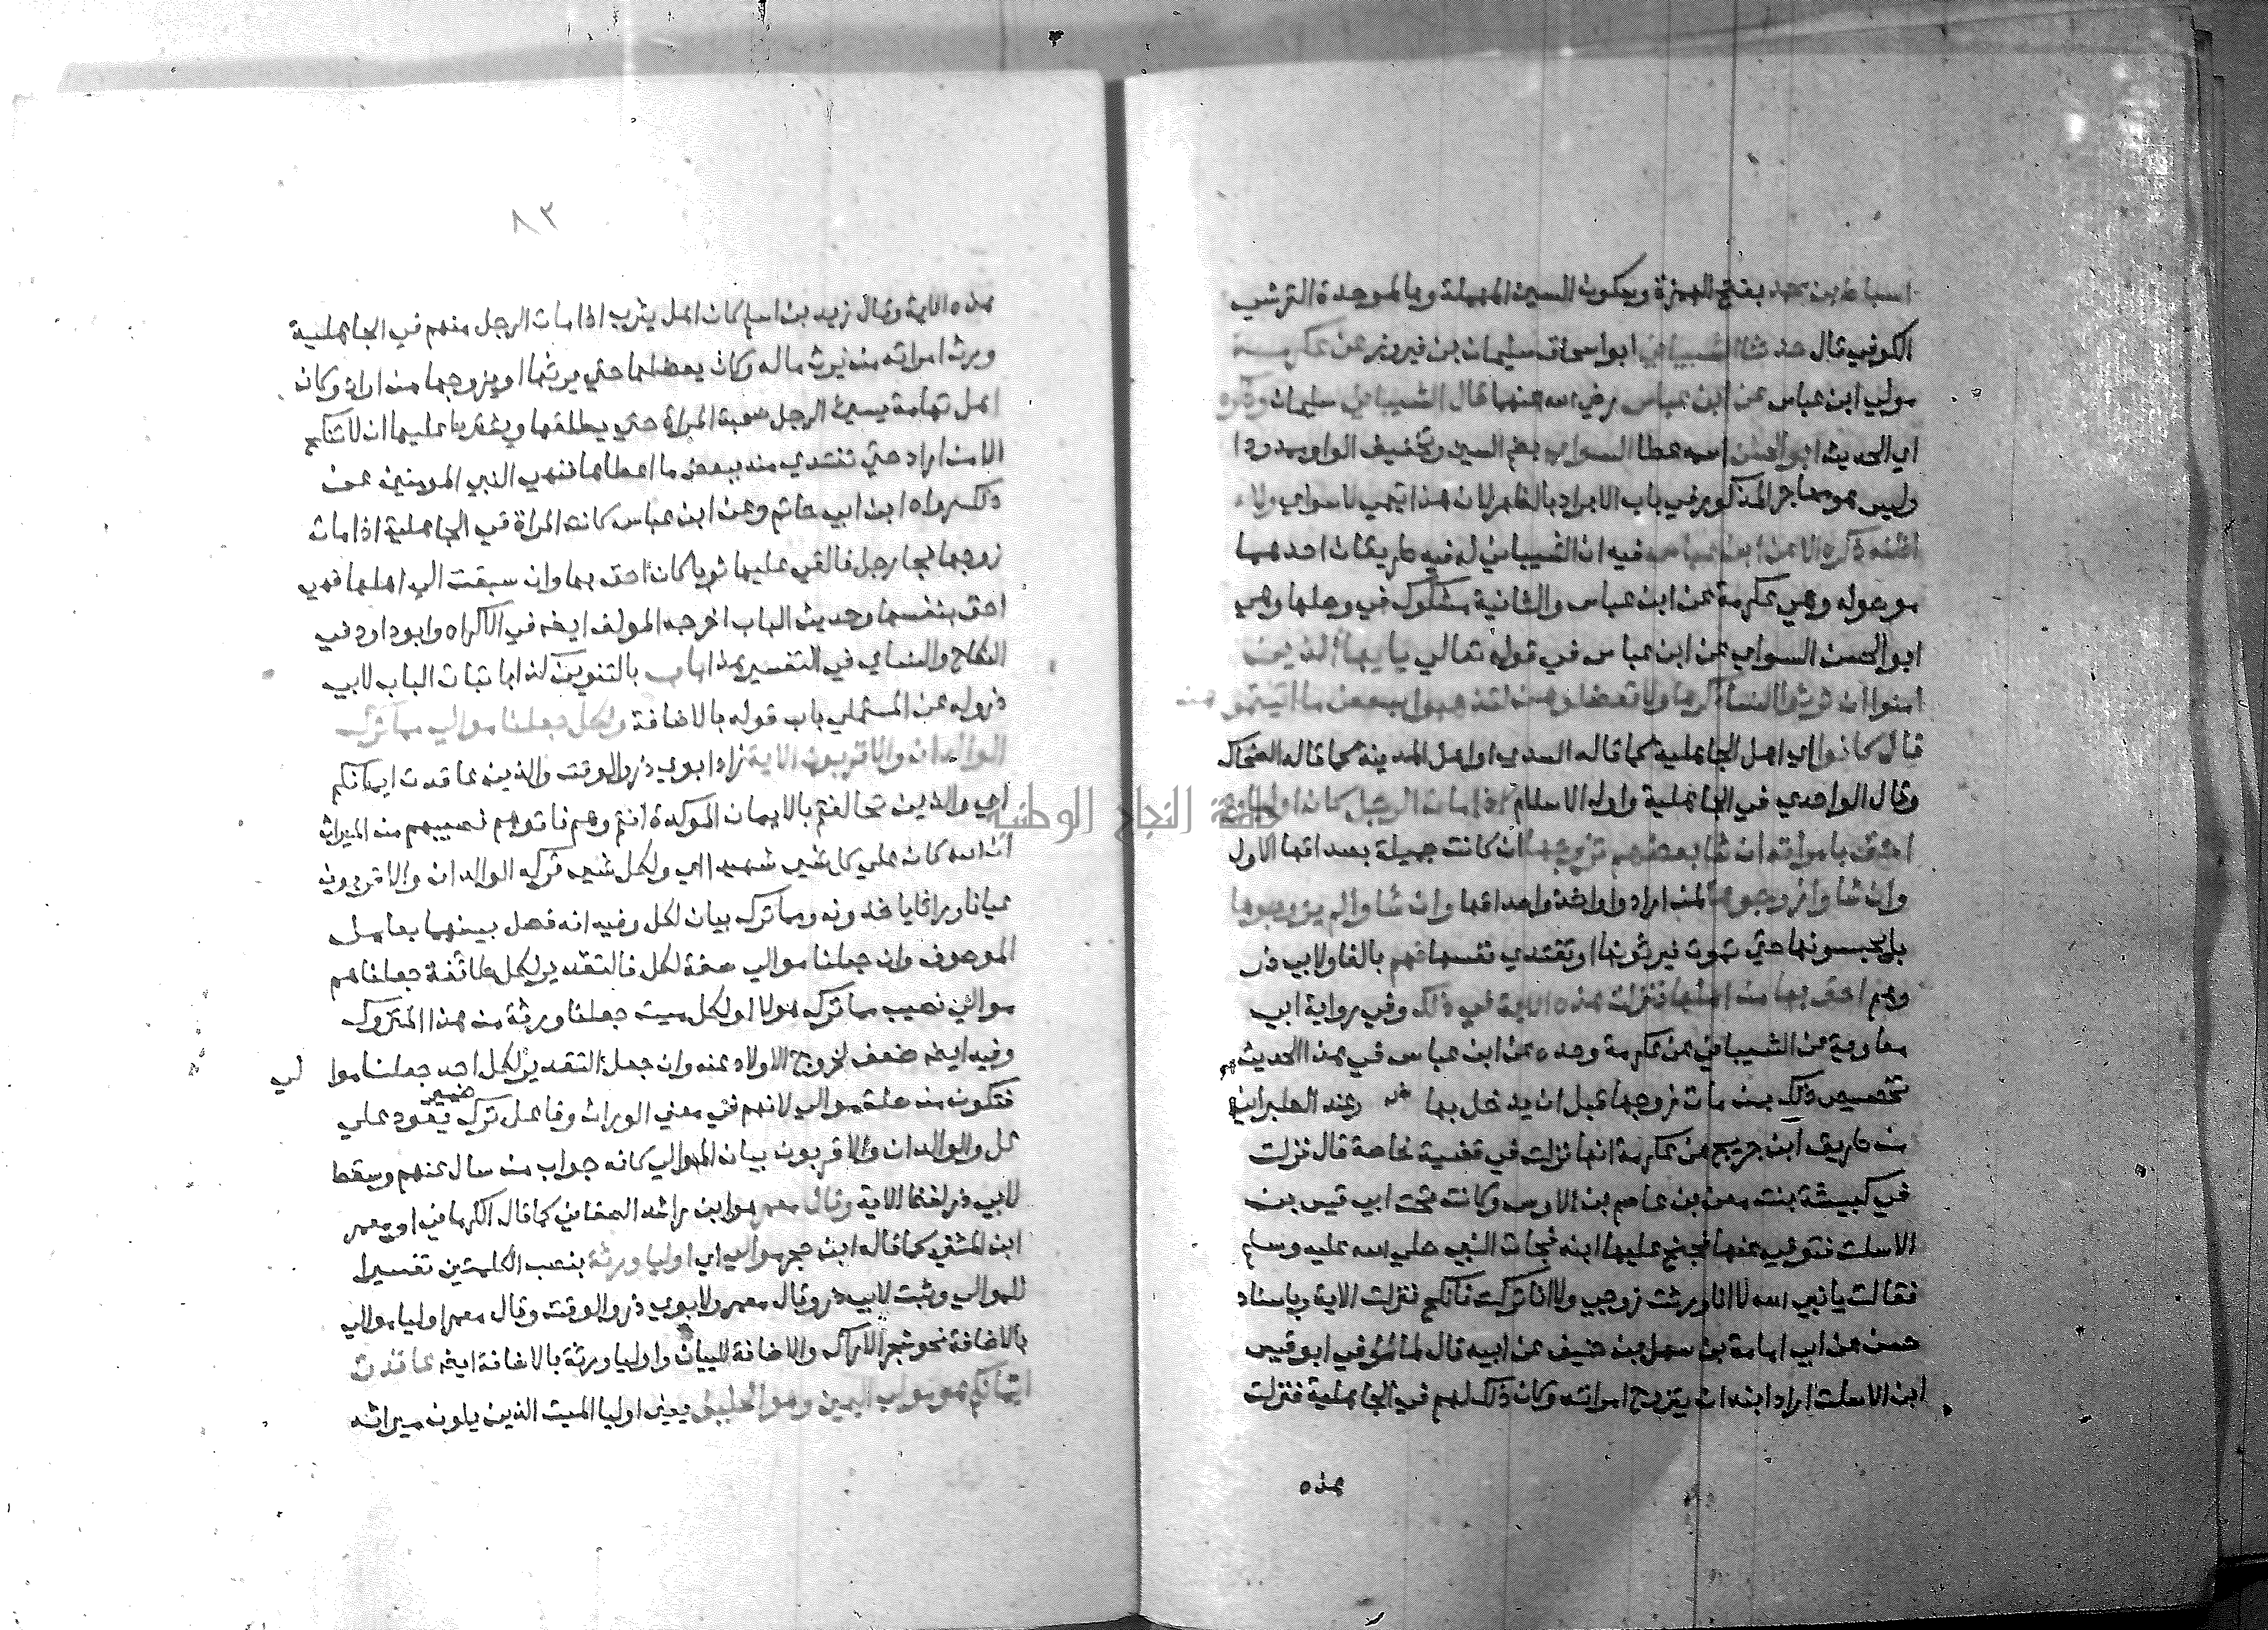 اسباط بن محمد بفتح الهمزة وسكون السين المهملة وبالموحدة القرشي
الكوفي قال حدثنا الشيباني ابو اسحاق سليمان بن فيروز عن عكرمة
مولي ابن عباس عن ابن عباس رضي الله عنهما قال الشيباني سليمان وذكره
اي الحديث ابو الحسن اسمه عطا السواي بضم السين وتخفيف الواو ممدودا
وليس هو مهاجر المذكور في باب الابراد بالظهر لان هذا تيمي لا سواي ولا
اظنه ذكره الا عن ابن عباس فيه ان الشيباني له فيه طريقان احدهما
موصوله وهي عكرمة عن ابن عباس والثانية مشكوك في وصلها وهي
ابو الحسن السواي عن ابن عباس في قوله تعالي يايها الذين
امنوا ان ترثوا النساء كرها ولا تعضلوهن لتذهبوا ببعض ما اتيتموهن
قال كانوا اي اهل الجاهلية كما قاله السدي او اهل المدينة كما قاله الضحاك
وقال الواحدي في الجاهلية واول الاسلام اذا مات الرجل كان اولياوه
احق بامراته ان شا بعضهم تزوجها ان كانت جميلة بصداقها الاول
وان شاوا زوجوها لمن ارادوا واخذوا صداقها وان شاوا لم يزوجوها
بل يحبسونها حتي تموت فيرثونها او تفتدي نفسها فهم بالفا ولابي ذر
وهم احق بها من اهلها فنزلت هذه الاية في ذلك وفي رواية ابي
معاوية عن الشيباني عن عكرمة وحده عن ابن عباس في هذا الحديث
تخصيص ذلك بمن مات زوجها قبل ان يدخل بها وعند الطبراني
من طريق ابن جريج عن عكرمة انها نزلت في قضية خاصة قال نزلت
في كبيشة بنت معن بن عاصم بن الاوس وكانت تحت ابي قيس بن
الاسلت فتوفي عنها فجنح عليها ابنه فجات النبي صلي الله عليه وسلم
فقالت يانبي الله لا انا ورثت زوجي ولا انا تركت فانكح فنزلت الاية وباسناد
حسن عن ابي امامة بن سهل بن حنيف عن ابيه قال لما توفي ابو قيس
ابن الاسلت اراد ابنه ان يتزوج امراته وكان ذلك لهم في الجاهلية فنزلت
هذه
٨٣
هذه الاية وقال زيد بن اسلم كان اهل يثرب اذا مات الرجل منهم في الجاهلية
ورث امراته من يرث ماله وكان يعضلها حتي يرثها او يزوجها من اراد وكان
اهل تهامة يسئ الرجل صحبة المراة حتي يطلقها ويشترط عليها ان لا تنكح
الا من اراد حتي تفتدي منه ببعض ما اعطاها فنهي النبي المومنين عن
ذلك رواه ابن ابي حاتم وعن ابن عباس كانت المراة في الجاهلية اذا مات
زوجها فجا رجل فالقي عليها ثوبا كان احق بها وان سبقت الي اهلها فهي
احق بنفسها وحديث الباب اخرجه المولف ايضه في الاكراه وابو داود في
النكاح والنساي في التفسير هذا باب بالتنوين كذا باثبات الباب لابي
ذر وله عن المستملي باب قوله بالاضافة ولكل جعلنا موالي مما ترك
الوالدان والاقربون الاية زاد ابوي ذر والوقت والذين عاقدت ايمانكم
اي والذين تحالفتم بالايمان الموكدة انتم وهم فاتوهم نصيبهم من الميراث
ان الله كان علي كل شي شهيدا اي ولكل شي تركه الوالدان والاقربون
عيانا وراثا يا خدونه ومما ترك بيان لكل وفيه انه فصل بينهما بعامل
الموصوف وان جعلنا موالي صفة لكل فالتقدير لكل طائفة جعلناهم
موالي نصيب مما ترك هولا او لكل ميت جعلنا ورثة من هذا المتروك
وفيه ايضه ضعف لخروج الاولاد عنه وان جعل التقدير لكل احد جعلنا موا لي
فتكون من صلة موالي لانهم في معني الوراث وفاعل ترك ضمير يعود علي
كل والوالدان والاقربون بيان الموالي كانه جواب من سال عنهم وسقط
لابي ذر لفظ الاية وقال معمر هو ابن راشد الصنعاني كما قال الكرماني او معمر
ابن المثني كما قاله ابن حجر موالي اي اوليا ورثة بنصب الكلمتين تفسيرا
للموالي وثبت لابي ذر وقال معمر ولابوي ذر والوقت وقال معمر اوليا موالي
بالاضافة نحو شجر الاراك والاضافة للبيان واوليا ورثة بالاضافة ايضه عاقدت
ايمانكم هو مولي اليمين وهو الحليف يعني اوليا الميت الذين يلون ميراثه